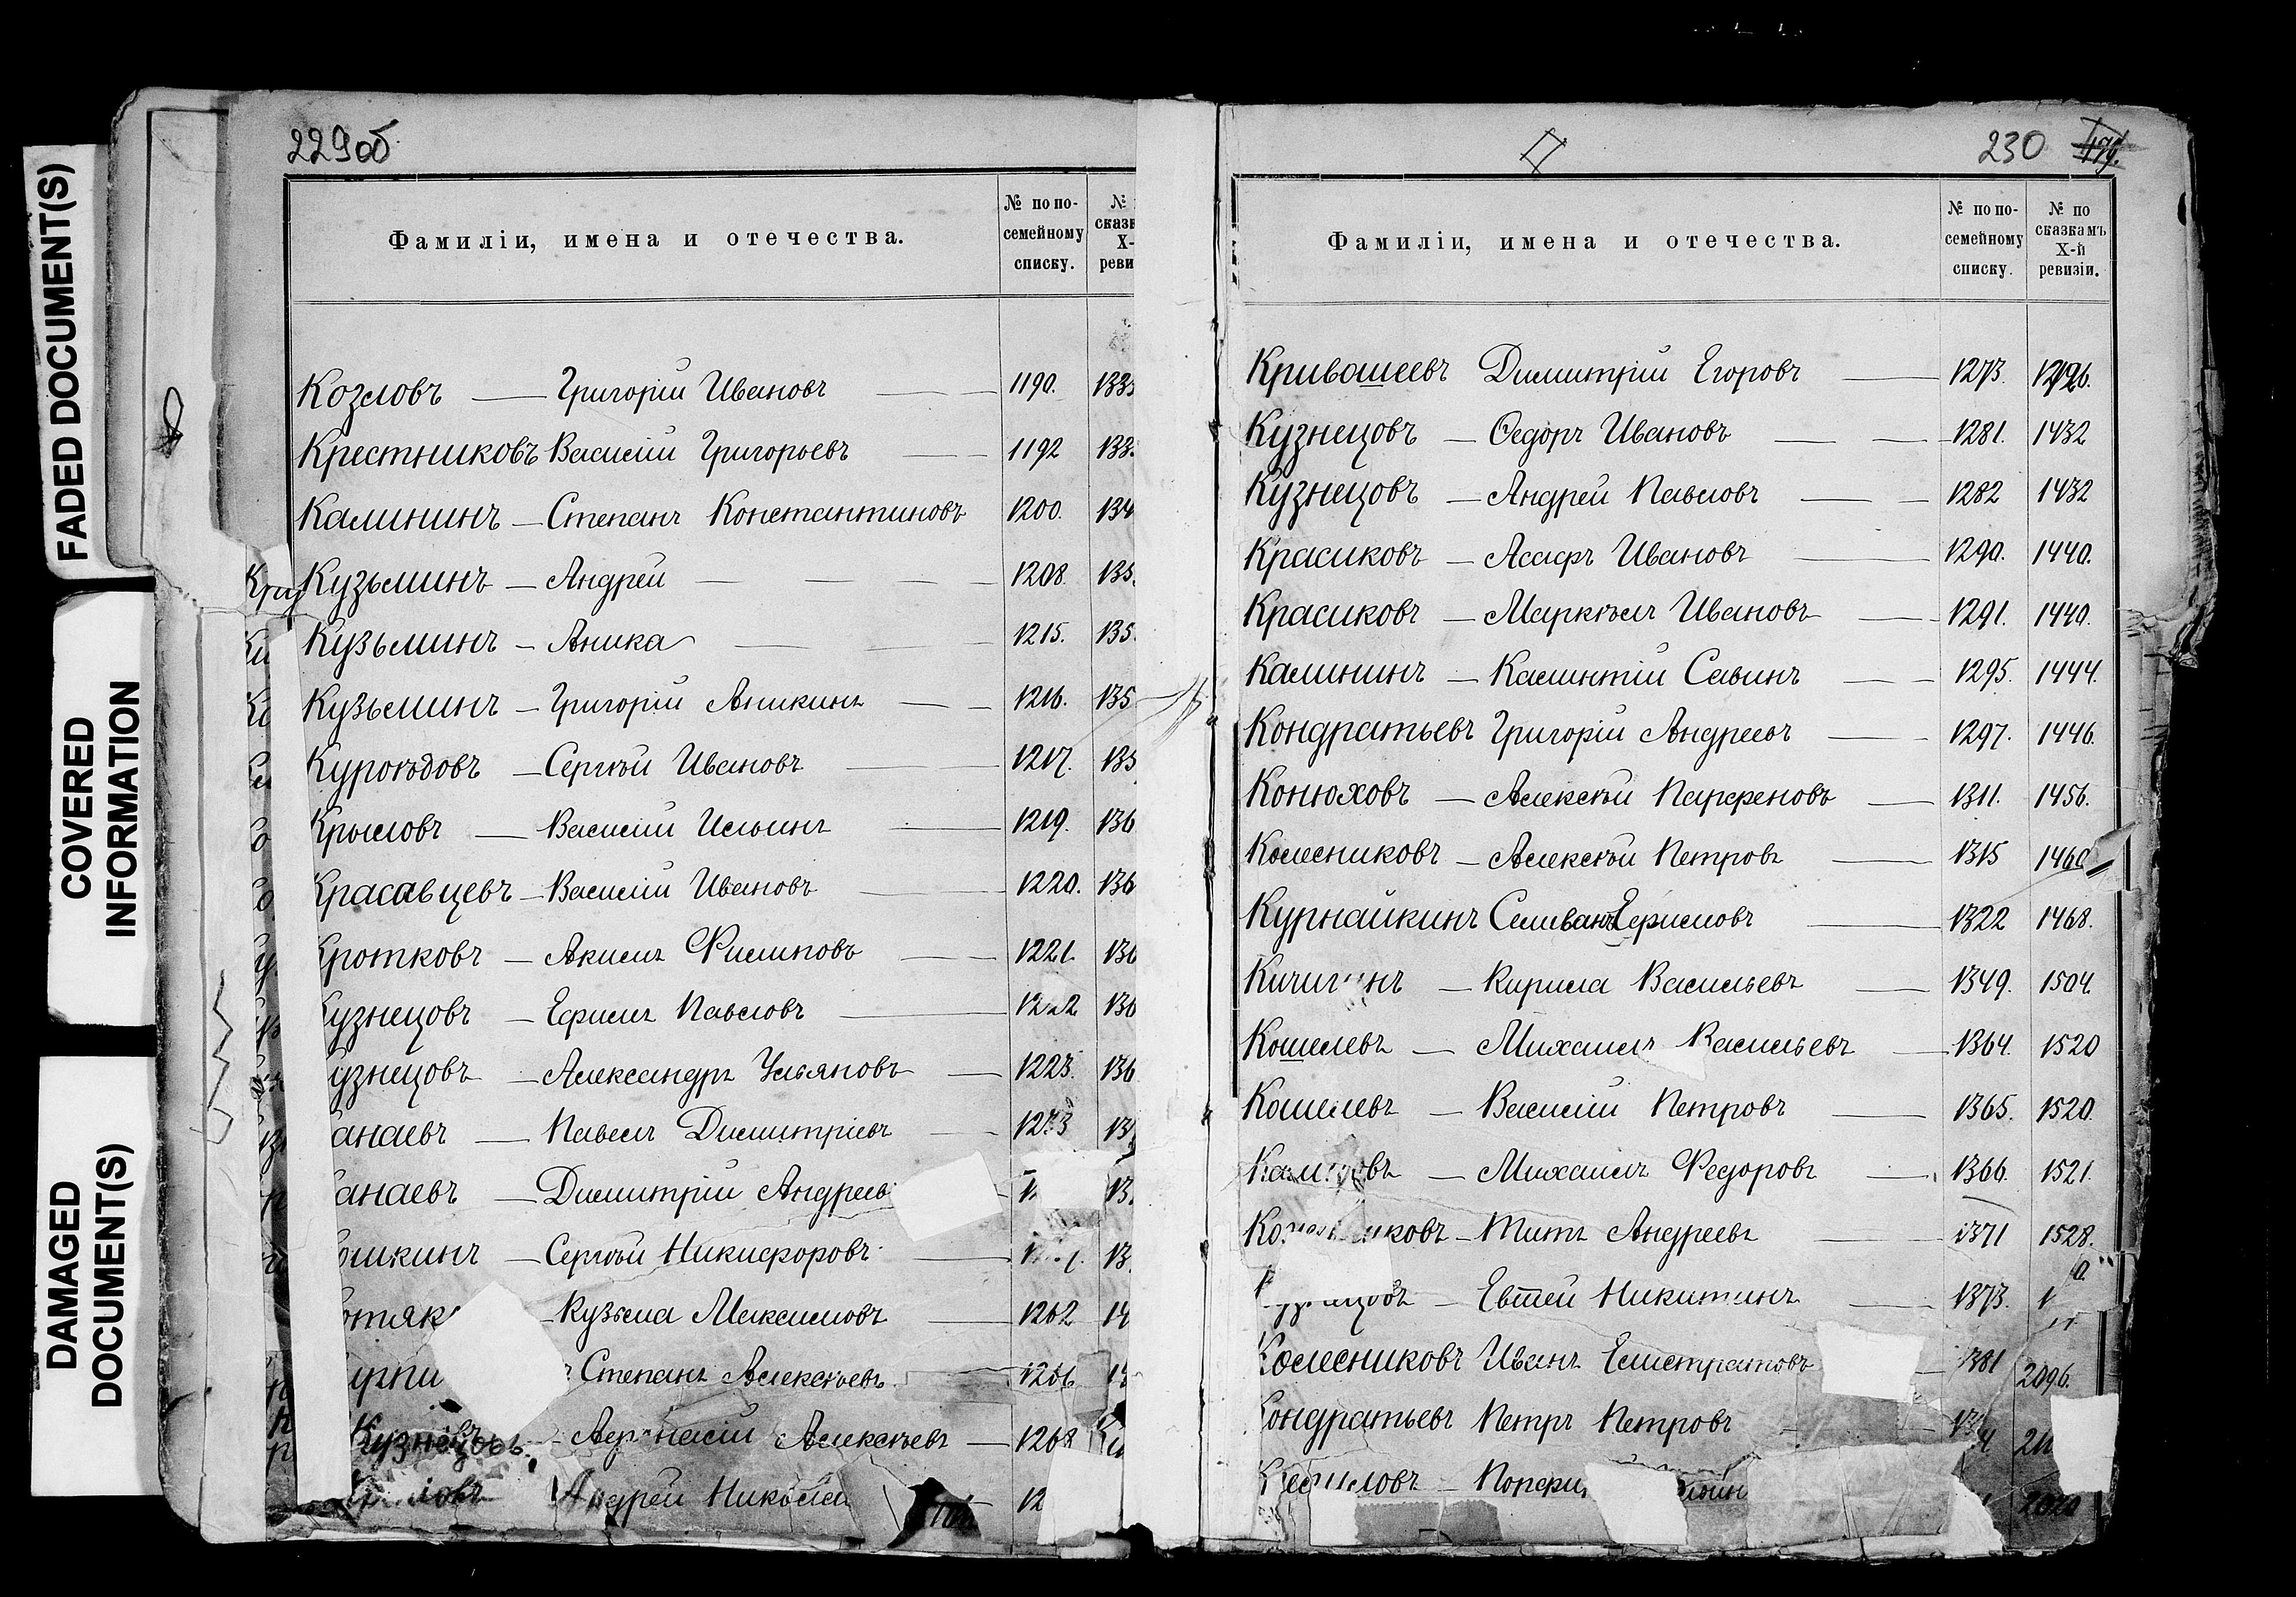 FADED DOCUMENT(S)
COVERED INFORMATION
DAMAGED DOCUMENT(S)
229об
Фамиліи, имена и отечества.
№ по по-
семейному
списку.
Козловъ — Григорій Ивановъ — 1190. 133
Крестниковъ Василій Григорьевъ — 1192 133
Калининъ — Степанъ Константиновъ 1200. 134
Кузьминъ — Андрей — 1208. 135
Кузьминъ — Аника — 1215. 135
Кузьминъ — Григорій Аникинъ — 1216. 135
Куроѣдовъ — Сергѣй Ивановъ — 1217. 135
Крыловъ — Василій Ильинъ — 1219. 136
Красавцевъ — Василій Ивановъ — 1220. 136
Кротковъ — Акимъ Филиповъ — 1221. 136
узнецовъ — Ефимъ Павловъ — 136
узнецовъ — Александръ Ульяновъ — 1223. 136
анаевъ — Павелъ Димитріевъ — 13
анаевъ — Димитрій Андреев 13
шкинъ — Сергѣй Никифоровъ — 13
отяк — Кузьма Максимовъ — 1262 14
урпи Степанъ Алексѣевъ 1266 14
Кузнецовъ — Алексѣевъ — 1268
Андрей 12
230
Фамиліи, имена и отечества.
№ по по-
семейному
списку.
№ по
сказкамъ
X-й
ревизіи.
Кривошеевъ Димитрій Егоровъ — 1273.
Кузнецовъ — Ѳедоръ Ивановъ — 1281. 1432
Кузнецовъ — Андрей Павловъ — 1282 1432
Красиковъ — Асафъ Ивановъ — 1290. 1440.
Красиковъ — Маркѣлъ Ивановъ — 1291. 1440.
Калининъ — Калинтій Савинъ — 1295. 1444.
Кондратьевъ Григорій Андреевъ — 1297. 1446.
Конюховъ — Алексѣй Парфеновъ — 1311. 1456.
Колесниковъ — Алексѣй Петровъ — 1315 1460
Курнайкинъ Селиванъ Ермиловъ — 1322 1468.
Кичигинъ — Кирила Васильевъ — 1349. 1504.
Кошелевъ — Михаилъ Васильевъ — 1364. 1520
Кошелевъ — Василій Петровъ — 1365. 1520.
— Михаилъ Федоровъ — 1366. 1521.
— Титъ Андреевъ — 1371 1528.
— Евтей Никитинъ — 1373.
Колесниковъ Иванъ Елистратовъ 1381 2096.
Кондратьевъ Петръ Петровъ
2020